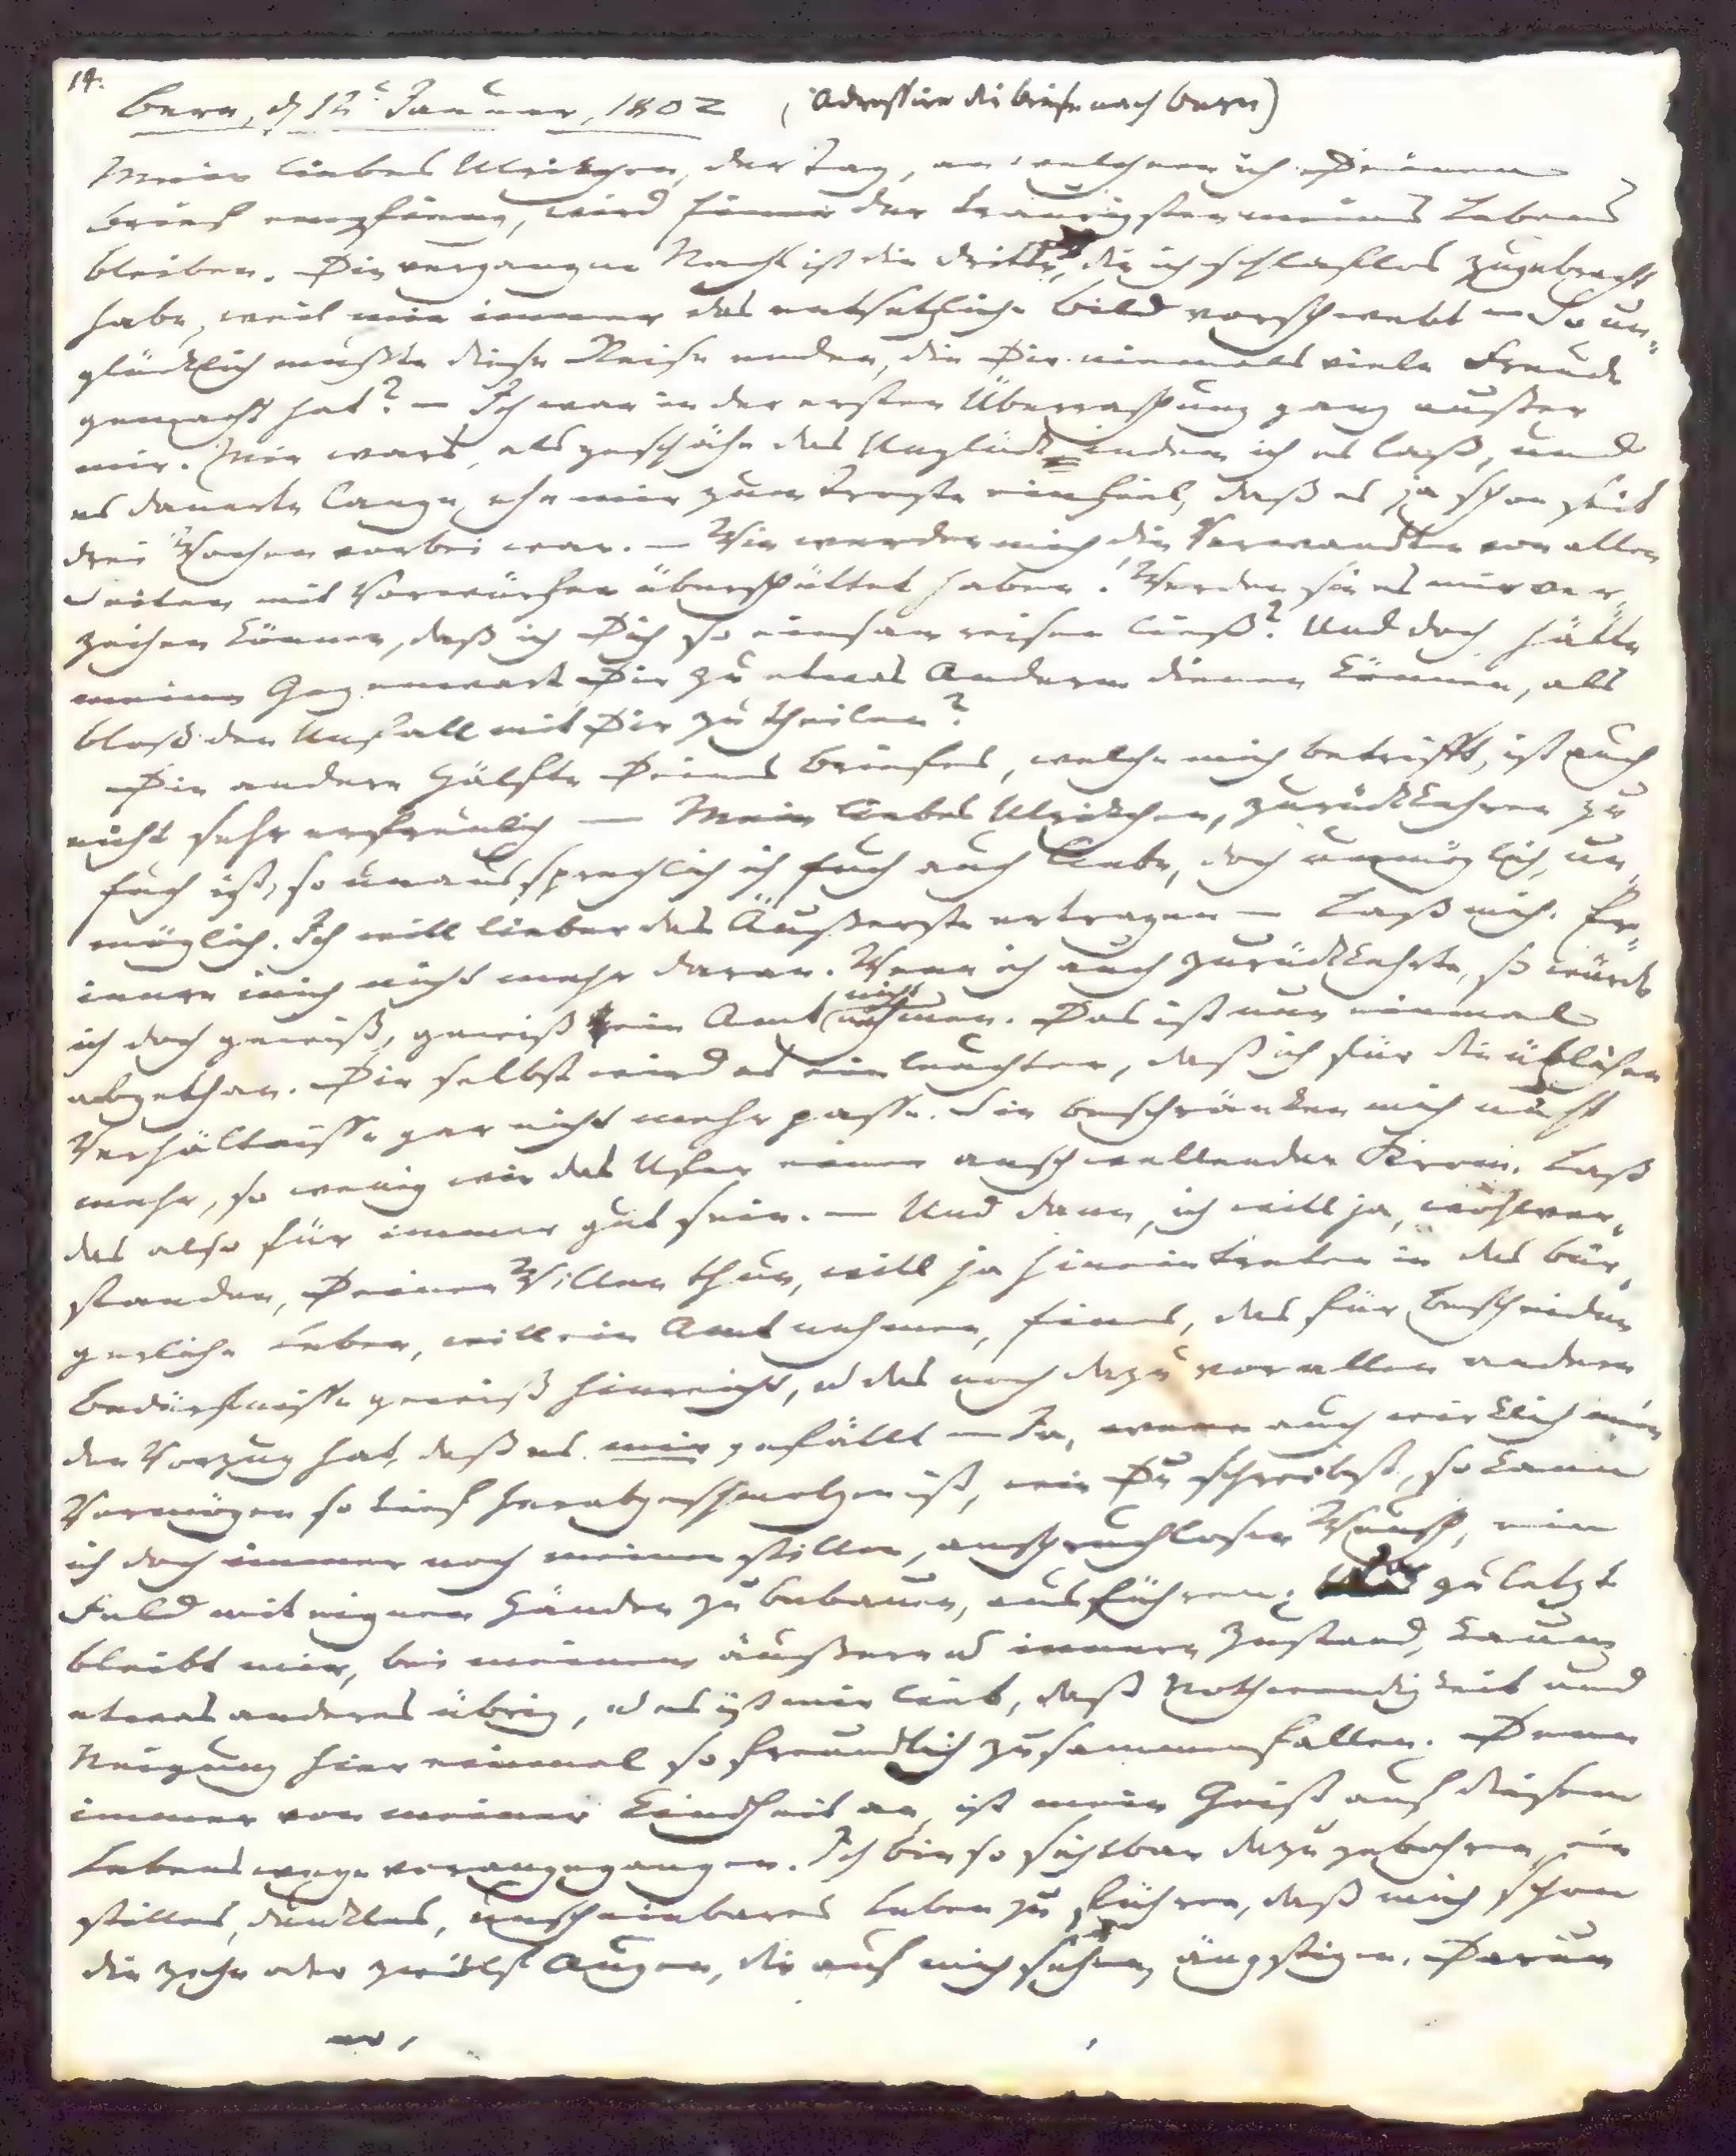 14.
Bern, d 12t Januar, 1802 (Adressire die Briefe nach Bern)
Mein liebes Ulrikchen, der Tag, an welchem ich Deinen
Brief empfieng, wird Einer der traurigsten meines Lebens
bleiben. Die vergangne Nacht ist die dritte, die ich schlaflos zugebracht
habe, weil mir immer das entsetzliche Bild vorschwebt — So un-
glücklich mußte diese Reise enden, die Dir niemals viele Freude
gemacht hat? — Ich war in der ersten Überraschung ganz außer
mir. Mir wars, als geschähe das Unglück indem ich es laß, und
es dauerte lange, ehe mir zum Troste einfiel, daß es ja schon seit
drei Wochen vorbei war. — Wie werden mich die Verwandten von allen
Seiten mit Vorwürfen überschüttet haben! Werden sie es mir ver-
zeihen können, daß ich Dich so einsam reisen ließ? Und doch, hätte
meine Gegenwart Dir zu etwas Anderm dienen können, als
bloß den Unfall mit Dir zu theilen?
Die andere Hälfte Deines Briefes, welche mich betrifft, ist auch
nicht sehr erfreulich — Mein liebes Ulrikchen, zurückkehren zu
Euch ist, so unaussprechlich ich Euch auch liebe, doch unmöglich, un-
möglich. Ich will lieber das Äußerste ertragen — Laß mich. Er-
innre mich nicht mehr daran. Wenn ich auch zurückkehrte, so würde
ich doch gewiß, gewiß ein Amt nicht nehmen. Das ist nun einmal
abgethan. Dir selbst wird es einleuchten, daß ich für die üblichen
Verhältnisse gar nicht mehr passe. Sie beschränken mich nicht
mehr, so wenig wie das Ufer einen anschwellenden Strom. Laß
das also für immer gut sein. — Und dann, ich will ja, wohlver-
standen, Deinen Willen thun, will ja hineintreten in das bür-
gerliche Leben, will ein Amt nehmen, Eines, das für bescheidne
Bedürfnisse gewiß hinreicht, u das noch dazu vor allen andern
den Vorzug hat, daß es mir gefällt — Ja, wenn auch wirklich mein
Vermögen so tief herabgeschmelzen ist, wie Du schreibst, so kann
ich doch immer noch meinen stillen, anspruchlosen Wunsch, ein
Feld mit eignen Händen zu bebauen, ausführen; Ja zuletzt
bleibt mir, bei meinem äußern u innern Zustand, kaum
etwas anderes übrig, u es ist mir lieb, daß Nothwendigkeit und
Neigung hier einmal so freundlich zusammenfallen. Denn
immer von meiner Kindheit an, ist mein Geist auf diesem
Lebenswege vorangegangen. Ich bin so sichtbar dazu gebohren, ein
stilles, dunkles, unscheinbares Leben zu führen, daß mich schon
die zehn oder zwölf Augen, die auf mich sehen, ängstigen. Darum